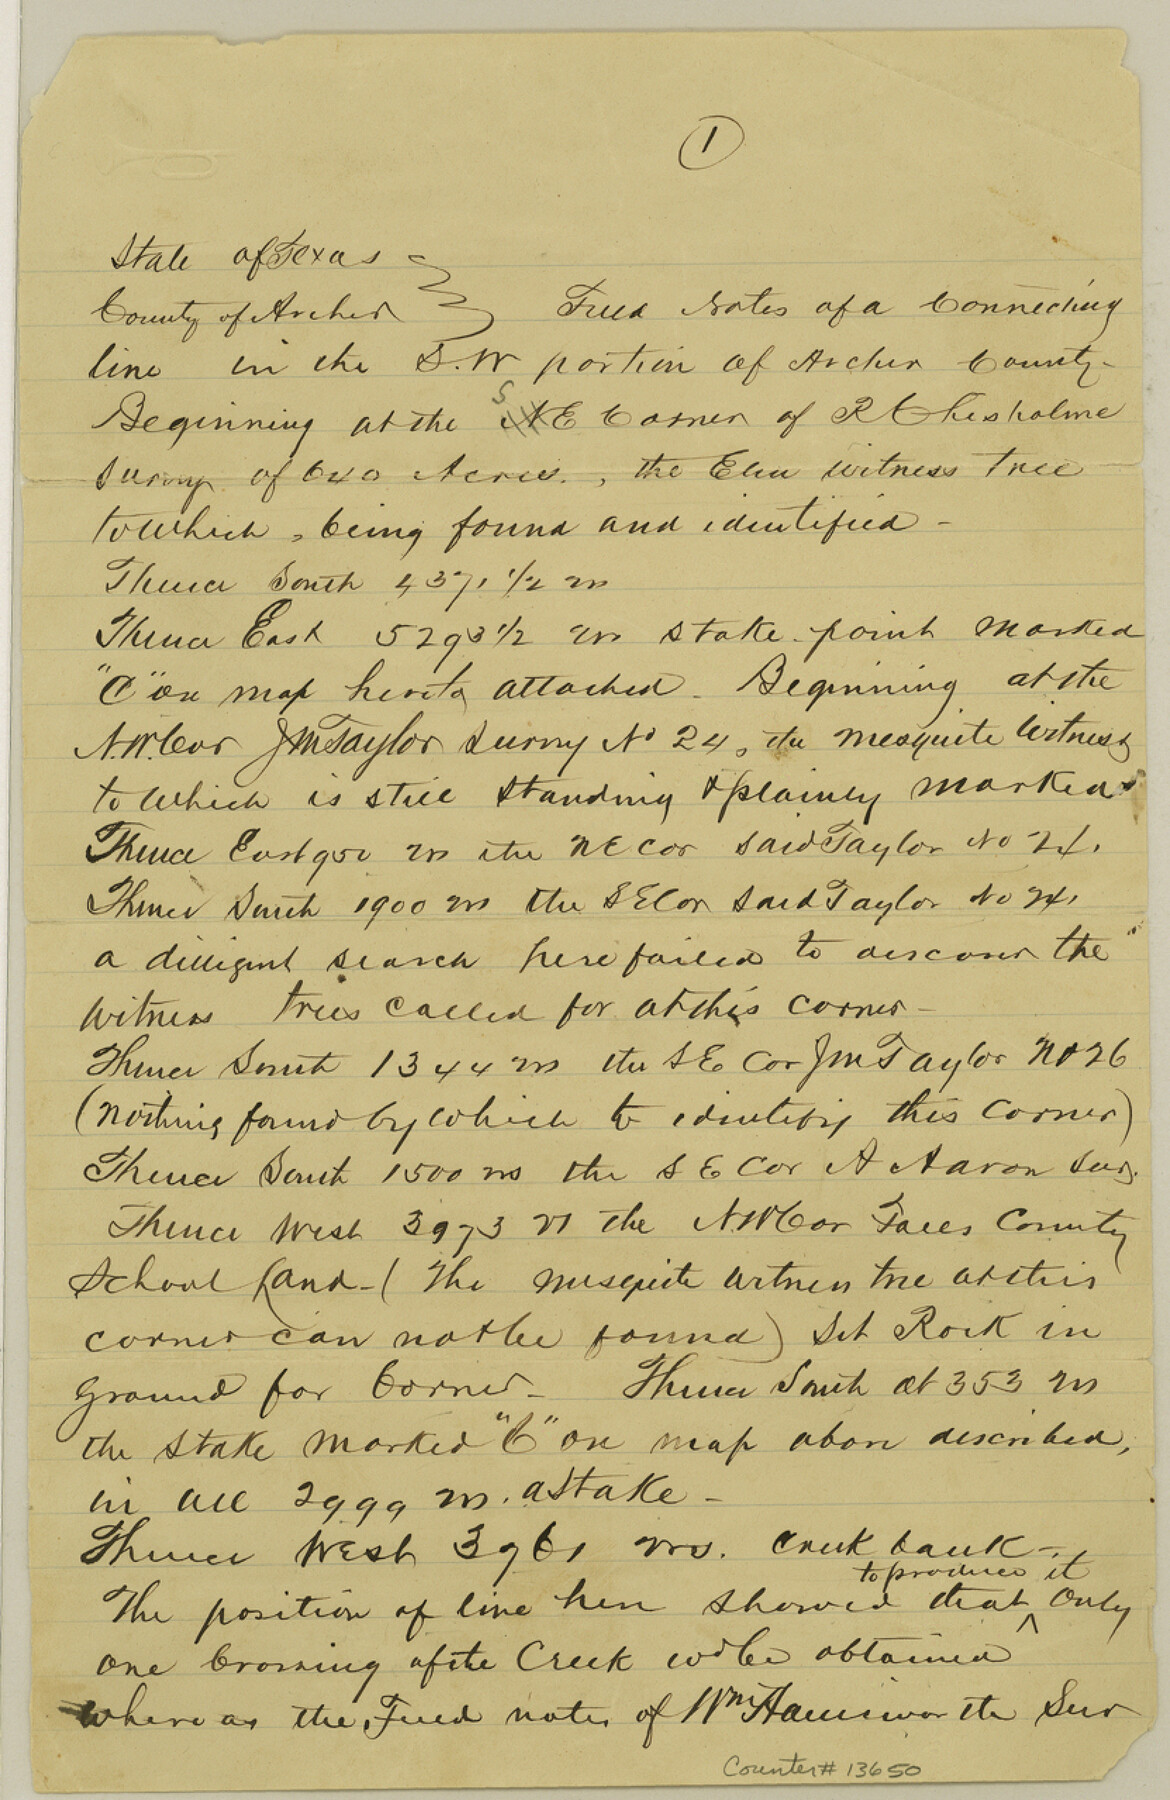 1
State of Texas
County of Archer } Field Notes of a Connecting
line in the S.W portion of Archer County-
Beginning at the S E Corner of R Chesholme
Survey of 640 Acres., the Elm witness tree
to which, being found and identified -
Thence South 4371 1/2 vrs
Thence East 5293 1/2 vrs stake point marked
"C" on map hereto attached. Beginning at the
N.W. Cor J M Taylor Survey No 24, the mesquite witness
to which is still standing & plainly marked
Thence East 950 vrs the N E Cor said Taylor No 24.
Thence South 1900 vrs the S E Cor said Taylor No 24.
a diligent search here failed to discover the
witness trees called for at this corner -
Thence South 1344 vrs the S E Cor J M Taylor No 26
(nothing found by which to identify this corner)
Thence South 1500 vrs the S E Cor A Aaron Sur.
Thence West 3973 vs the N W Cor Falls County
School Land - (The mesquite witness tree at this
corner can not be found) Set Rock in
ground for Corner - Thence South at 353 vrs
the stake marked "C" on map above described,
in all 2999 vrs. a Stake -
Thence West 3961 vrs. creek bank -
to produce it
The position of line here showed that ^ only
one Crossing of the Creek wd be obtained
where as the Field notes of Wm Hainsworth Sur
Counter# 13650